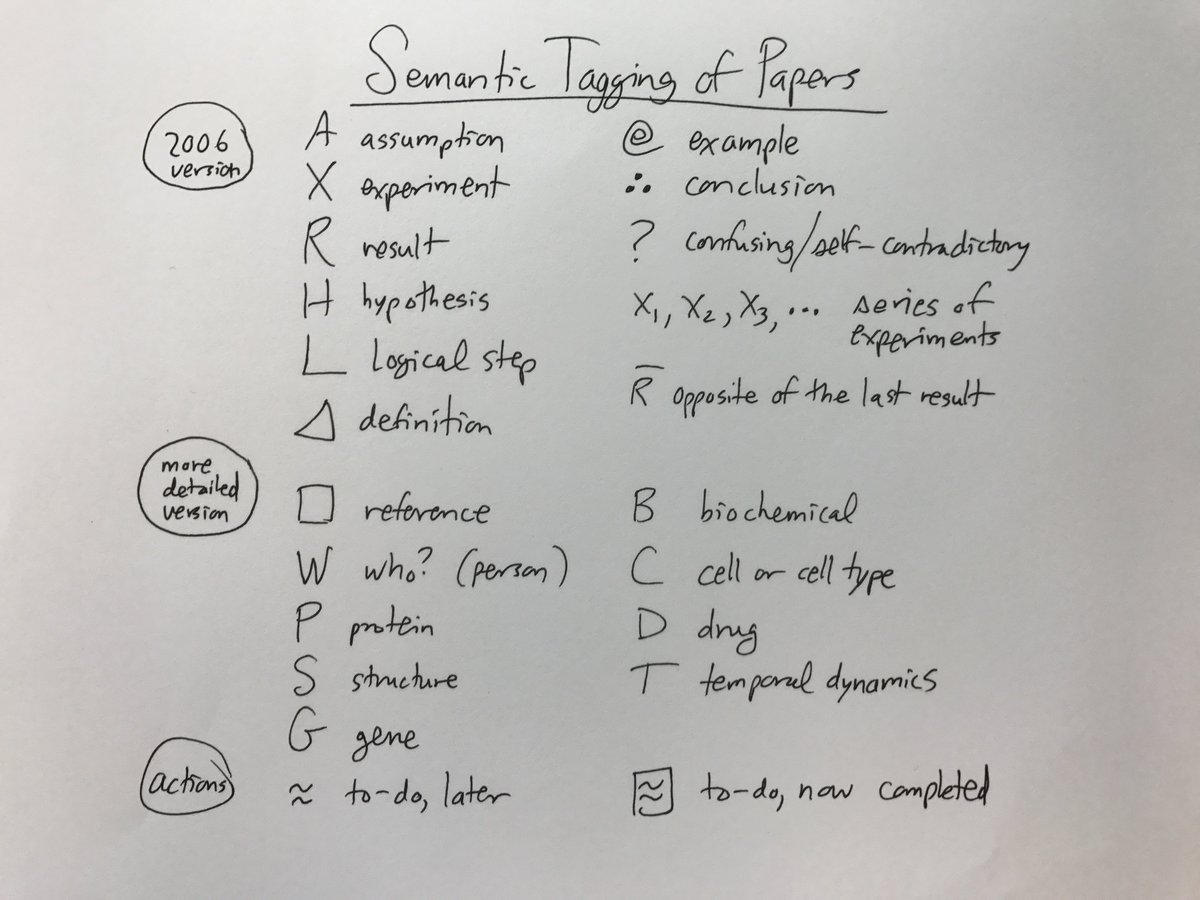 Semantic Tagging of Papers
2006
version
A assumption
X experiment
R result
H hypothesis
L Logical step
△ definition
ⓔ example
∴ conclusion
? confusing/self-contradictory
X₁, X₂, X₃, ... series of
experiments
R̅ opposite of the last result
more
detailed
version
□ reference
W who? (person)
P protein
S structure
G gene
B biochemical
C cell or cell type
D drug
T temporal dynamics
actions
≈ to-do, later
≈ to-do, now completed